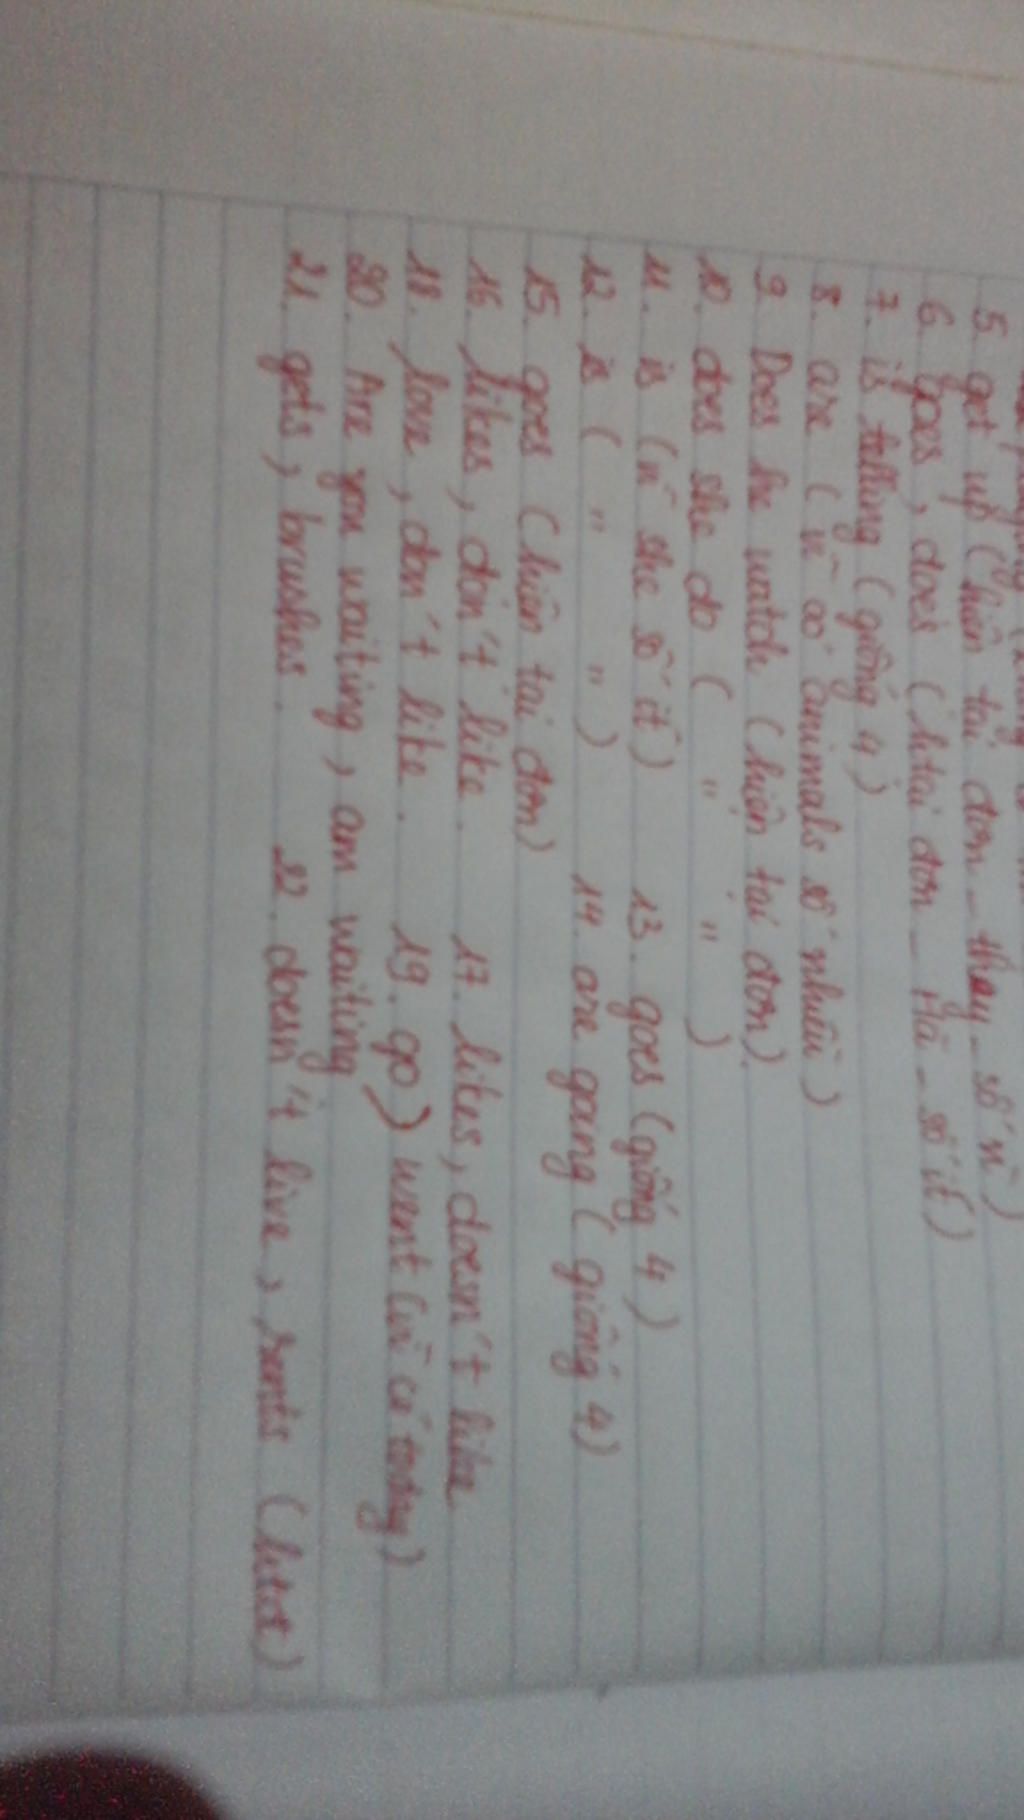 5. get up (hiện tại đơn - they - số n)
6. goes, does (h.tại đơn - Hà - số ít)
7. is telling (giống 4)
8. are (vì có animals số nhiều)
9. Does he watch (hiện tại đơn).
10. does she do ( " " )
11. is (n she số ít) 13. goes (giống 4)
12. is ( " " ) 14. are going (giống 4)
15. goes (hiện tại đơn)
16. likes, don't like. 17. likes, doesn't like
18. love, don't like. 19. go) went (vì có today)
20. Are you waiting, am waiting
21. gets, brushes. 22. doesn't live, rents